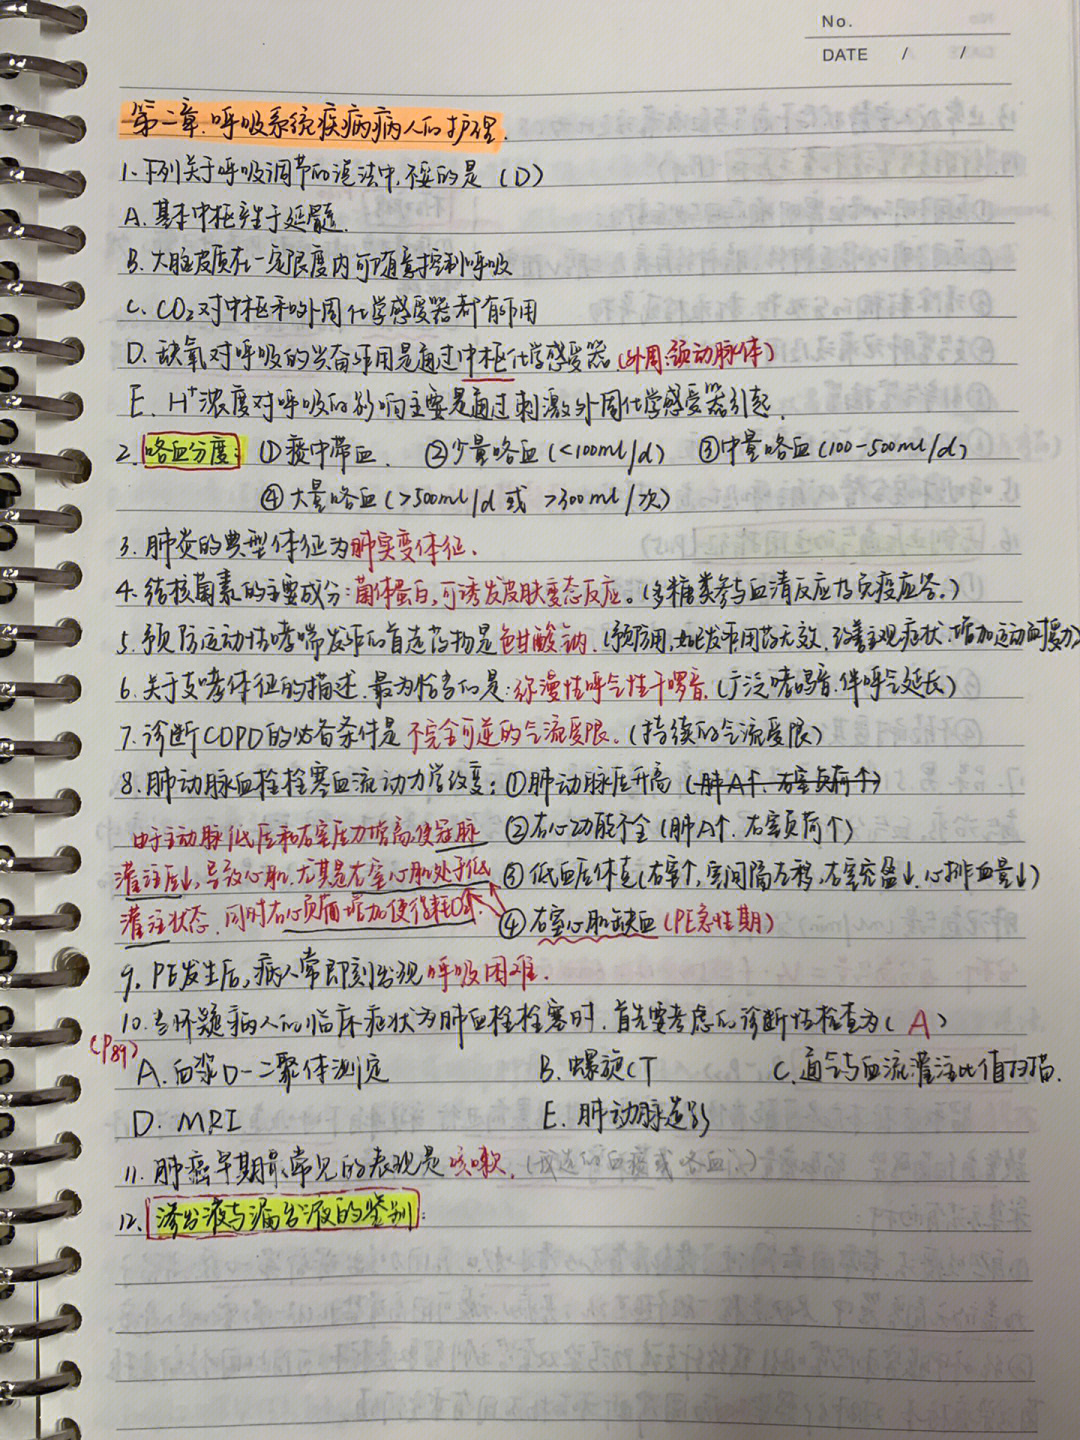 No.
DATE / /
第二章.呼吸系统疾病病人的护理.
1.下列关于呼吸调节的说法中,不妥的是(D)
A.基本中枢产生于延髓.
B.大脑皮质在一定限度内可随意控制呼吸
C.CO₂对中枢和外周化学感受器都有作用
D.缺氧对呼吸的兴奋作用是通过中枢化学感受器.(外周.颈动脉体)
E.H⁺浓度对呼吸的影响主要是通过刺激外周化学感受器引起.
2.咯血分度: ①痰中带血. ②少量咯血(<100ml/d) ③中量咯血(100-500ml/d)
④大量咯血(>500ml/d 或 >300ml/次)
3.肺炎的典型体征为肺实变体征.
4.结核菌素的主要成分:菌体蛋白,可诱发皮肤变态反应。(多糖类参与血清反应及免疫应答.)
5.预防运动性哮喘发作的首选药物是色甘酸钠.(预防用,如已发作用药无效,改善主观症状.增加运动耐受力)
6.关于支哮体征的描述.最为恰当的是:弥漫性呼气性干啰音.(广泛哮鸣音.伴呼气延长)
7.诊断COPD的必备条件是不完全可逆的气流受限.(持续的气流受限)
8.肺动脉血栓栓塞血流动力学改变:①肺动脉压升高(肺A↑.右室负荷↑)
由于主动脉低压和右室压力增高,使冠脉 ②右心功能不全(肺A↑.右室负荷↑)
灌注压↓,导致心肌.尤其是右室心肌处于低 ③低血压休克(右室↑,室间隔左移.右室充盈↓.心排血量↓)
灌注状态.同时右心负荷增加使得耗O₂↑. ④右室心肌缺血(PE急性期)
9.PE发生后,病人常即刻出现呼吸困难.
10.当怀疑病人的临床症状为肺血栓栓塞时.首先要考虑的诊断性检查为(A)
(P89)
A.血浆D-二聚体测定 B.螺旋CT C.通气与血流灌注比值扫描.
D.MRI E.肺动脉造影
11.肺癌早期最常见的表现是咳嗽.
12.渗出液与漏出液的鉴别: